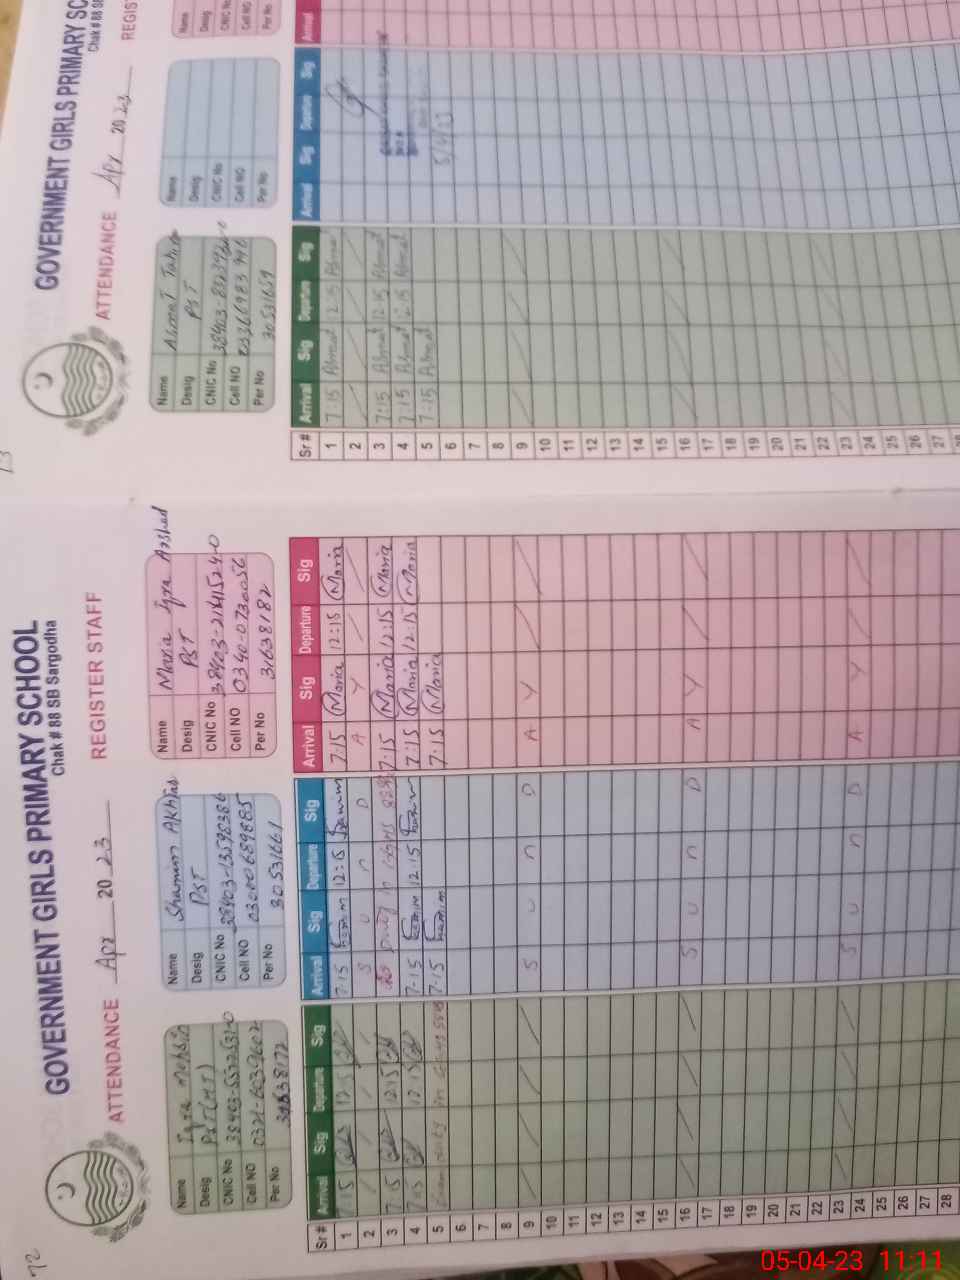 72
GOVERNMENT GIRLS PRIMARY SCHOOL
Chak # 88 SB Sargodha
ATTENDANCE Apr 20 23 REGISTER STAFF
Name Iqra Mohsin
Desig PST
CNIC No
Cell NO
Per No
Name Shamim Akhtar
Desig PST
CNIC No
Cell NO 03000689885
Per No 30531661
Name Maria Iqra Arshad
Desig PST
CNIC No
Cell NO 0340-0730056
Per No 31638182
Sr # Arrival Sig Departure Sig Arrival Sig Departure Sig Arrival Sig Departure Sig
1 7:15 12:15 7:15 Shamim 12:15 Shamim 7:15 Maria 12:15 Maria
2 S U N D A Y
3 7:15 12:15 duty in 7:15 Maria 12:15 Maria
4 7:15 12:15 7:15 Shamim 12:15 Shamim 7:15 Maria 12:15 Maria
5 duty in 7:15 Shamim 7:15 Maria
6
7
8
9 S U N D A Y
10
11
12
13
14
15
16 S U N D A Y
17
18
19
20
21
22
23 S U N D A Y
24
25
26
27
28
73
GOVERNMENT GIRLS PRIMARY SC
Chak # 88 SB
ATTENDANCE Apr 20 23 REGIST
Name Asmat Tahira
Desig PST
CNIC No
Cell NO
Per No 30531659
Name
Desig
CNIC No
Cell NO
Per No
Name
Desig
CNIC No
Cell No
Per No
Sr # Arrival Sig Departure Sig Arrival Sig Departure Sig Arrival
1 7:15 Asmat 12:15 Asmat
2
3 7:15 Asmat 12:15 Asmat
4 7:15 Asmat 12:15 Asmat
5 7:15 Asmat 5/4/23
6
7
8
9
10
11
12
13
14
15
16
17
18
19
20
21
22
23
24
25
26
27
28
05-04-23 11:11